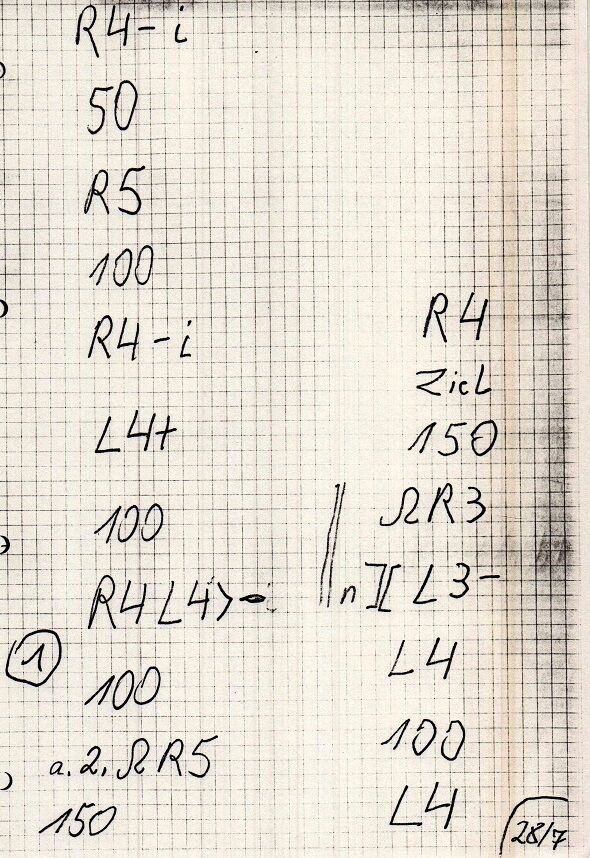 R4-i
50
R5
100
R4-i
L4+
100
R4L4>-
①
100
a.2. ΩR5
150
R4
Ziel
150
ΩR3
n][ L3-
L4
100
L4
28/7